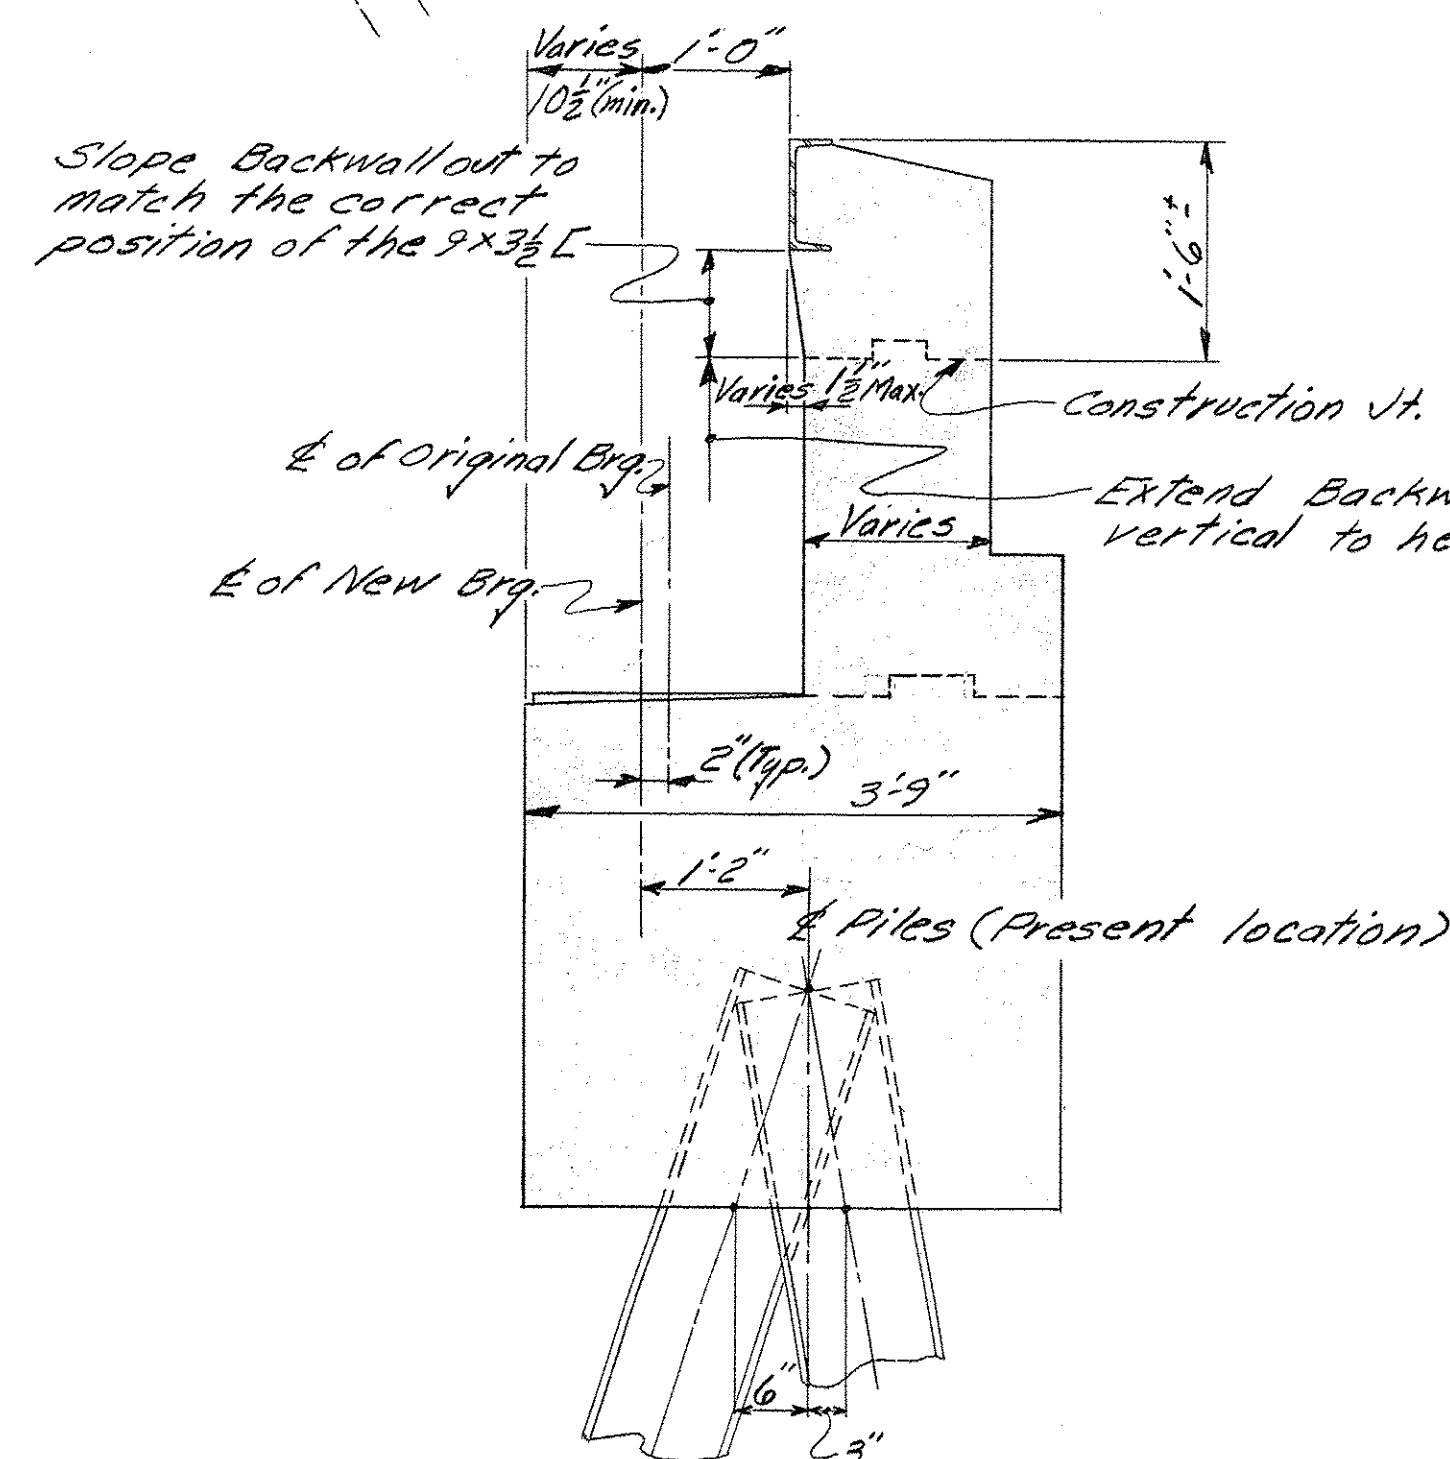 Varies 1'-0"
10½"(min.)
Slope Backwall out to
match the correct
position of the 9×3½ [
1'-6"±
Varies 1½" Max.
Construction Jt.
℄ of Original Brg.
Extend Backw
vertical to he
Varies
℄ of New Brg.
2"(Typ.)
3'-9"
1'-2"
℄ Piles (Present location)
6"
3"